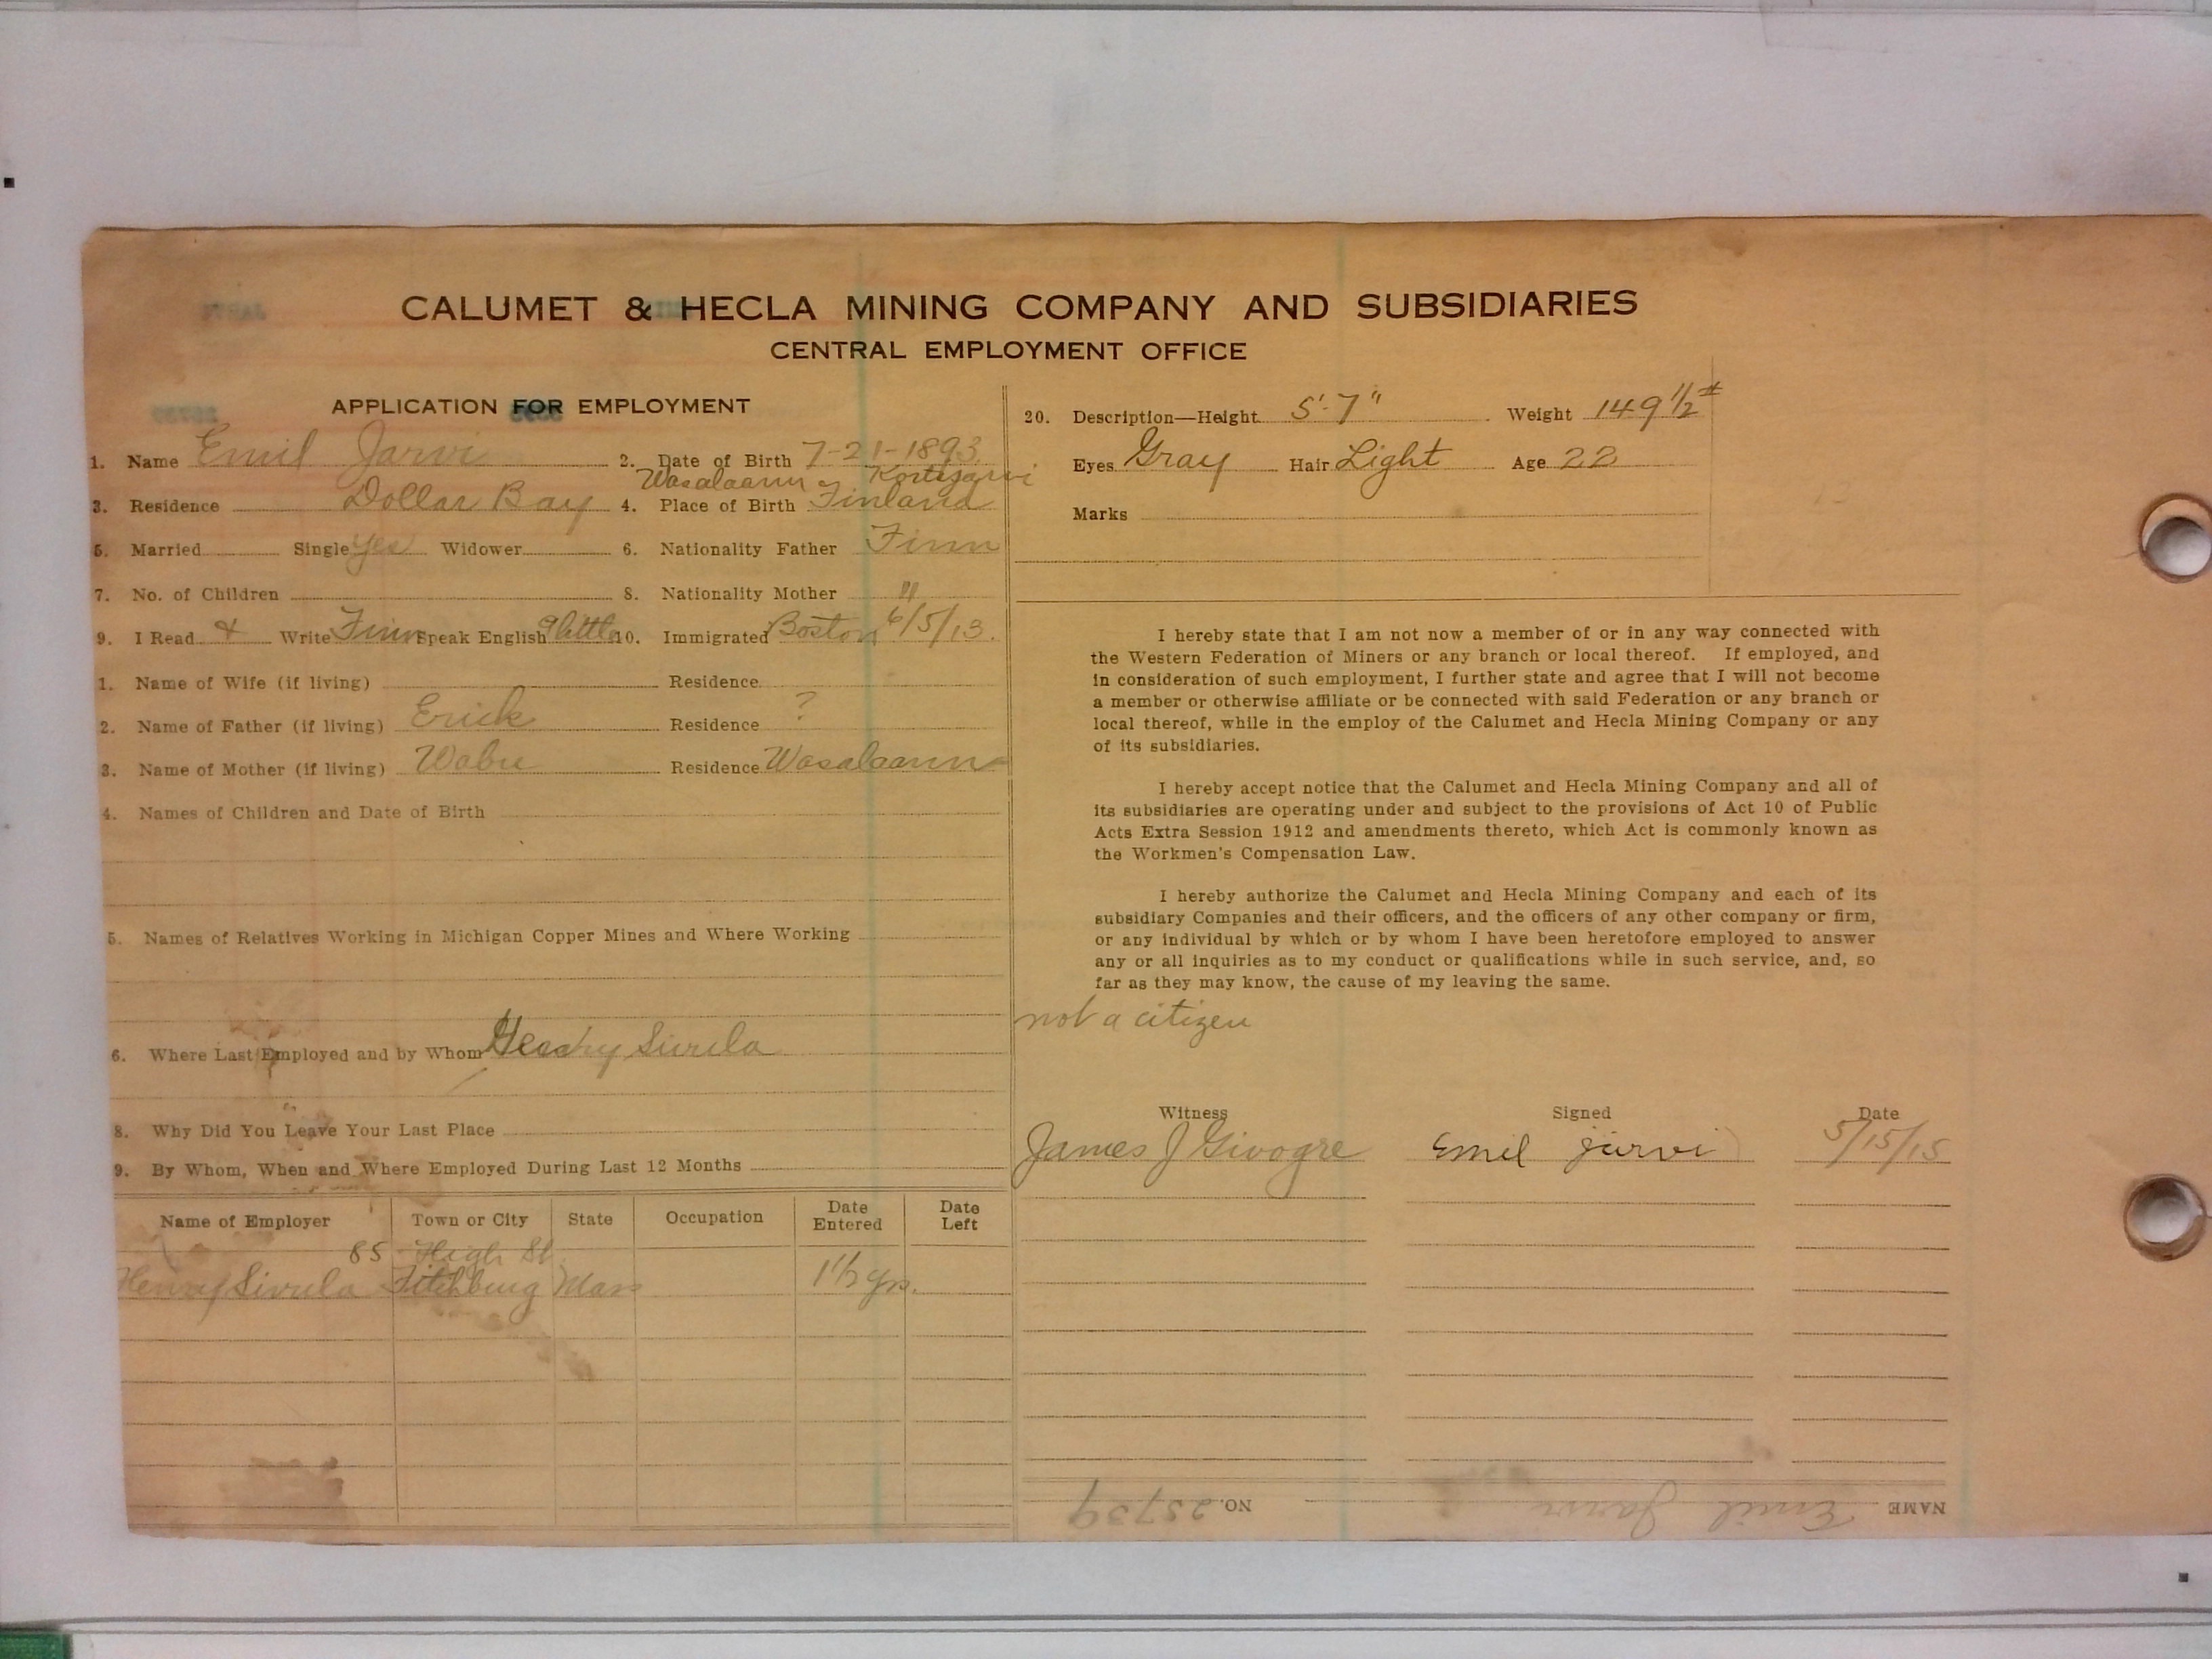 CALUMET & HECLA MINING COMPANY AND SUBSIDIARIES
CENTRAL EMPLOYMENT OFFICE
APPLICATION FOR EMPLOYMENT
1. Name Emil Jarvi 2. Date of Birth 7-21-1893
Wasalaann Kortesjarvi
3. Residence Dollar Bay 4. Place of Birth Finland
5. Married Single yes Widower 6. Nationality Father Finn
7. No. of Children 8. Nationality Mother "
9. I Read & Write Finn Speak English little 10. Immigrated Boston 6/5/13.
1. Name of Wife (if living) Residence
2. Name of Father (if living) Erick Residence ?
3. Name of Mother (if living) Residence Wasalaann
4. Names of Children and Date of Birth
5. Names of Relatives Working in Michigan Copper Mines and Where Working
6. Where Last Employed and by Whom Henry Sivula
8. Why Did You Leave Your Last Place
9. By Whom, When and Where Employed During Last 12 Months
Name of Employer Town or City State Occupation Date Entered Date Left
85 High St
Henry Sivula Fitchburg Mass 1½ yrs.
20. Description—Height 5'-7" Weight 149 1/2 #
Eyes Gray Hair Light Age 22
Marks
I hereby state that I am not now a member of or in any way connected with
the Western Federation of Miners or any branch or local thereof. If employed, and
in consideration of such employment, I further state and agree that I will not become
a member or otherwise affiliate or be connected with said Federation or any branch or
local thereof, while in the employ of the Calumet and Hecla Mining Company or any
of its subsidiaries.
I hereby accept notice that the Calumet and Hecla Mining Company and all of
its subsidiaries are operating under and subject to the provisions of Act 10 of Public
Acts Extra Session 1912 and amendments thereto, which Act is commonly known as
the Workmen's Compensation Law.
I hereby authorize the Calumet and Hecla Mining Company and each of its
subsidiary Companies and their officers, and the officers of any other company or firm,
or any individual by which or by whom I have been heretofore employed to answer
any or all inquiries as to my conduct or qualifications while in such service, and, so
far as they may know, the cause of my leaving the same.
not a citizen
Witness Signed Date
James J Givogre Emil järvi 5/15/15
NAME Emil Jarvi NO. 25739